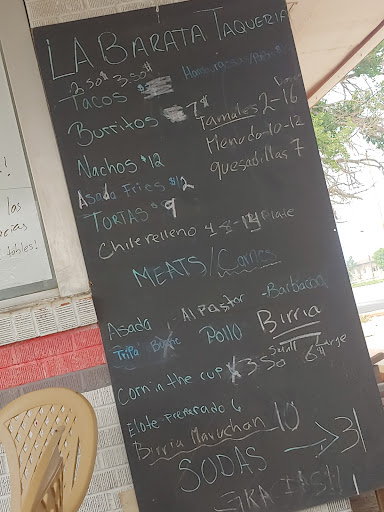 LA BARATA TAQUERIA
2.50¢ 3.50¢
Tacos
Burritos 7$
Nachos $12
Asada Fries $12
TORTAS $9
Tamales 2-16
Menudo-10-12
quesadillas 7
Chile relleno 4-8-14 Plate
MEATS/Carnes
Asada Al Pastor -Barbacoa
Tripa Pollo Birria
Corn in the cup 3.50 Small 6 Large
Elote Preparado 6
Birria Maruchan 10
SODAS → 3
las
dables!